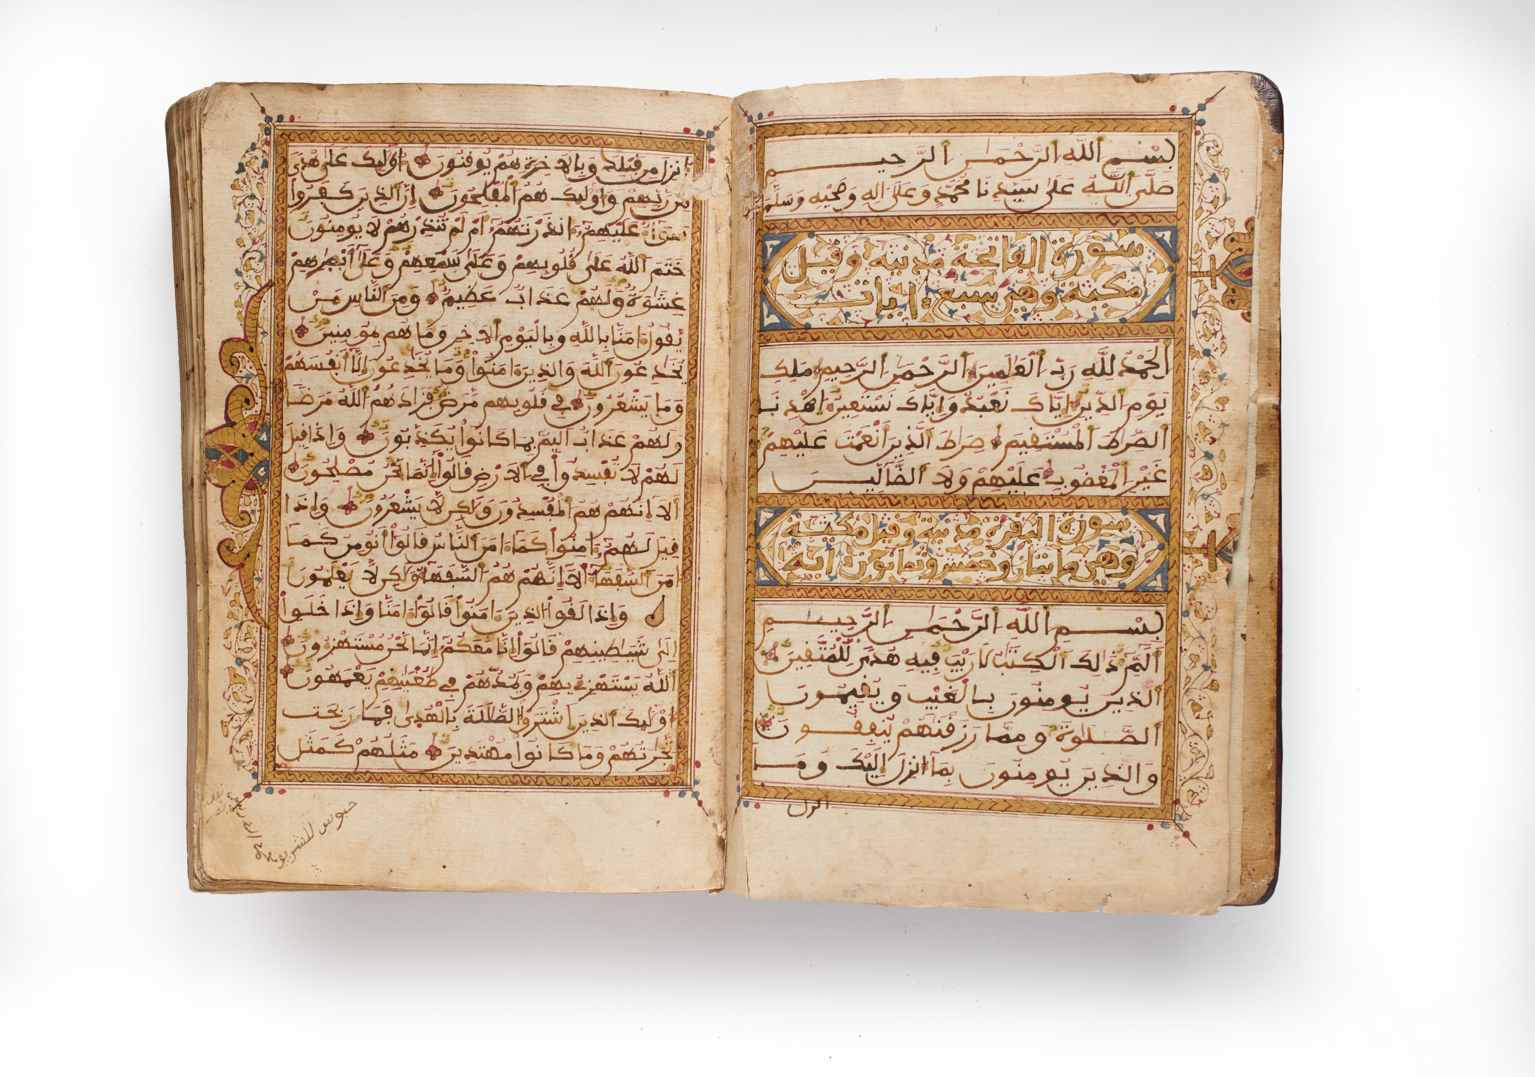 بسم الله الرحمن الرحيم
صلى الله على سيدنا محمد وعلى اله وصحبه وسلم
سورة الفاتحة مدنية وقيل
مكية وهي سبع ايات
الحمد لله رب العلمين الرحمن الرحيم ملك
يوم الدين اياك نعبد واياك نستعين اهدنا
الصراط المستقيم صراط الذين انعمت عليهم
غير المغضوب عليهم ولا الضالين
سورة البقرة مدنية وقيل مكية
وهي مايتان وخمس وثمانون اية
بسم الله الرحمن الرحيم
الم ذلك الكتب لا ريب فيه هدى للمتقين
الذين يومنون بالغيب ويقيمون
الصلوة ومما رزقنهم ينفقون
والذين يومنون بما انزل اليك وما
انزل
انزل من قبلك وبالاخرة هم يوقنون اوليك على هدى
من ربهم واوليك هم المفلحون ان الذين كفروا
سواء عليهم ءانذرتهم ام لم تنذرهم لا يومنون
ختم الله على قلوبهم وعلى سمعهم وعلى ابصرهم
غشوة ولهم عذاب عظيم ومن الناس من
يقول ءامنا بالله وباليوم الاخر وما هم بمومنين
يخدعون الله والذين ءامنوا وما يخدعون الا انفسهم
وما يشعرون في قلوبهم مرض فزادهم الله مرضا
ولهم عذاب اليم بما كانوا يكذبون واذا قيل
لهم لا تفسدوا في الارض قالوا انما نحن مصلحون
الا انهم هم المفسدون ولكن لا يشعرون واذا
قيل لهم ءامنوا كما ءامن الناس قالوا انومن كما
ءامن السفهاء الا انهم هم السفهاء ولكن لا يعلمون
واذا لقوا الذين ءامنوا قالوا ءامنا واذا خلوا
الى شيطينهم قالوا انا معكم انما نحن مستهزءون
الله يستهزئ بهم ويمدهم في طغينهم يعمهون
اوليك الذين اشتروا الضللة بالهدى فما ربحت
تجرتهم وما كانوا مهتدين مثلهم كمثل